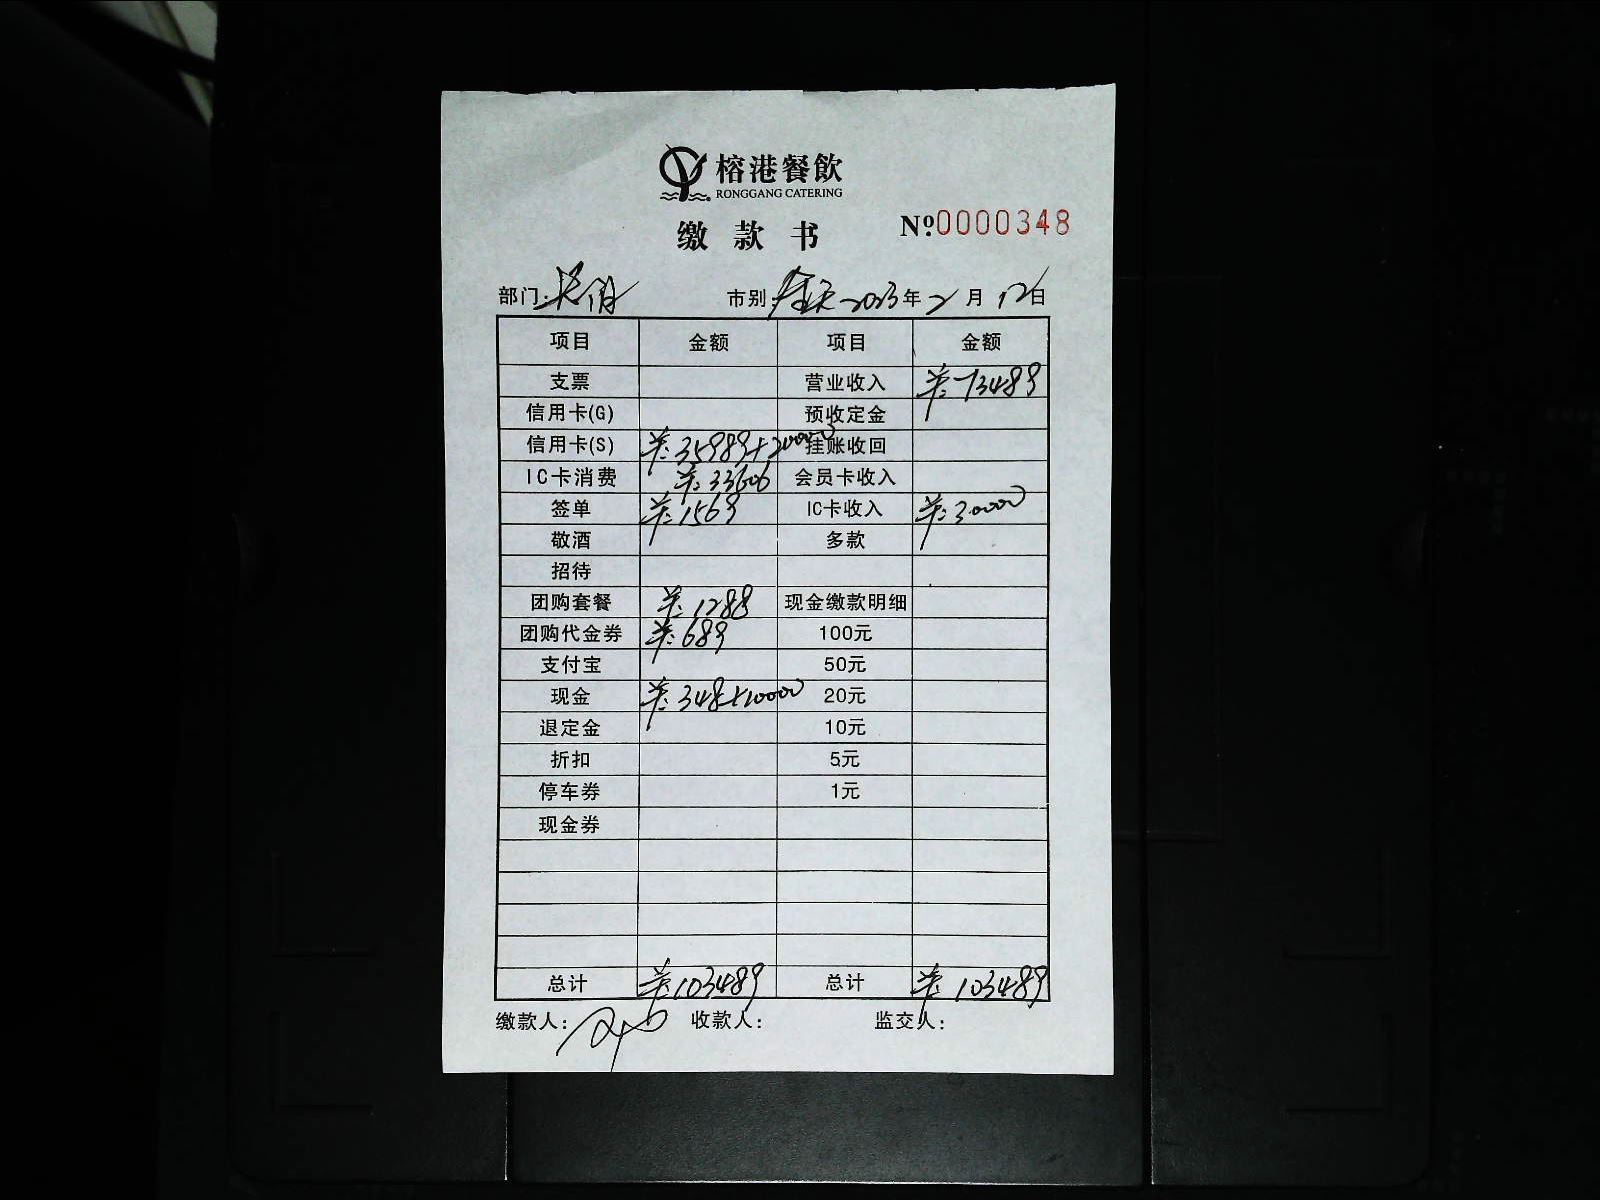 榕港餐飲
RONGGANG CATERING
缴款书
№0000348
部门: 市别: 全天 2023年2月12日
项目 金额 项目 金额
支票 营业收入 羊:73489
信用卡(G) 预收定金
信用卡(S) 羊:35989+20000 挂账收回
IC卡消费 羊:33606 会员卡收入
签单 羊:1569 IC卡收入 羊:30000
敬酒 多款
招待
团购套餐 羊:1288 现金缴款明细
团购代金券 羊:689 100元
支付宝 50元
现金 羊:348+10000 20元
退定金 10元
折扣 5元
停车券 1元
现金券
总计 羊:103489 总计 羊:103489
缴款人: 收款人: 监交人: